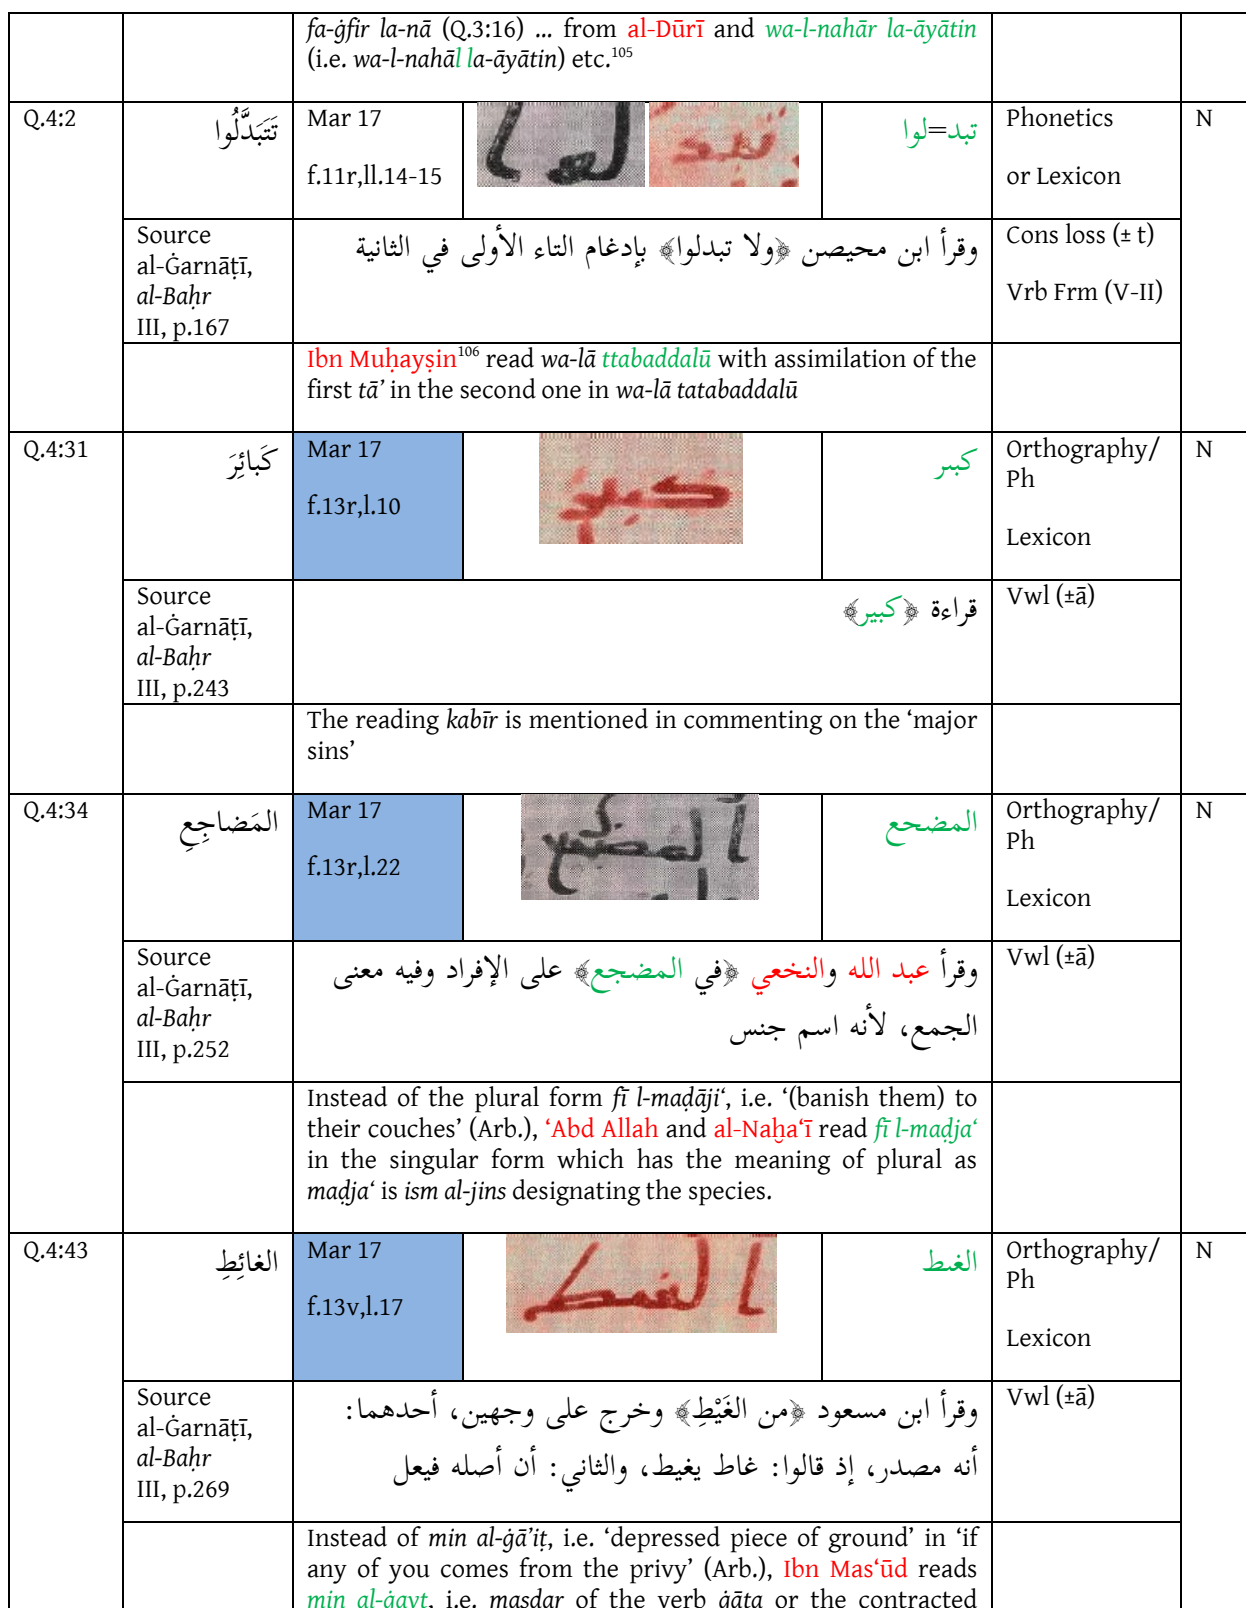 fa-ġfir la-nā (Q.3:16) ... from al-Dūrī and wa-l-nahār la-āyātin
(i.e. wa-l-nahāl la-āyātin) etc.105
Q.4:2
تَتَبَدَّلُوا
Mar 17
f.11r,ll.14-15
تبد=لوا
Phonetics
or Lexicon
N
Source
al-Ġarnāṭī,
al-Baḥr
III, p.167
وقرأ ابن محيصن ﴿ولا تبدلوا﴾ بإدغام التاء الأولى في الثانية
Cons loss (± t)
Vrb Frm (V-II)
Ibn Muḥayṣin106 read wa-lā ttabaddalū with assimilation of the
first tā’ in the second one in wa-lā tatabaddalū
Q.4:31
كَبائِرَ
Mar 17
f.13r,l.10
كبٮر
Orthography/
Ph
Lexicon
N
Source
al-Ġarnāṭī,
al-Baḥr
III, p.243
قراءة ﴿كبير﴾
Vwl (±ā)
The reading kabīr is mentioned in commenting on the ‘major
sins’
Q.4:34
المَضاجِعِ
Mar 17
f.13r,l.22
المضحع
Orthography/
Ph
Lexicon
N
Source
al-Ġarnāṭī,
al-Baḥr
III, p.252
وقرأ عبد الله والنخعي ﴿في المضجع﴾ على الإفراد وفيه معنى
الجمع، لأنه اسم جنس
Vwl (±ā)
Instead of the plural form fī l-maḍāji‘, i.e. ‘(banish them) to
their couches’ (Arb.), ‘Abd Allah and al-Naḫa‘ī read fī l-maḍja‘
in the singular form which has the meaning of plural as
maḍja‘ is ism al-jins designating the species.
Q.4:43
الغائِطِ
Mar 17
f.13v,l.17
الغٮط
Orthography/
Ph
Lexicon
N
Source
al-Ġarnāṭī,
al-Baḥr
III, p.269
وقرأ ابن مسعود ﴿من الغَيْطِ﴾ وخرج على وجهين، أحدهما:
أنه مصدر، إذ قالوا: غاط يغيط، والثاني: أن أصله فيعل
Vwl (±ā)
Instead of min al-ġā’iṭ, i.e. ‘depressed piece of ground’ in ‘if
any of you comes from the privy’ (Arb.), Ibn Mas‘ūd reads
min al-ġayṭ, i.e. maṣdar of the verb ġāṭa or the contracted